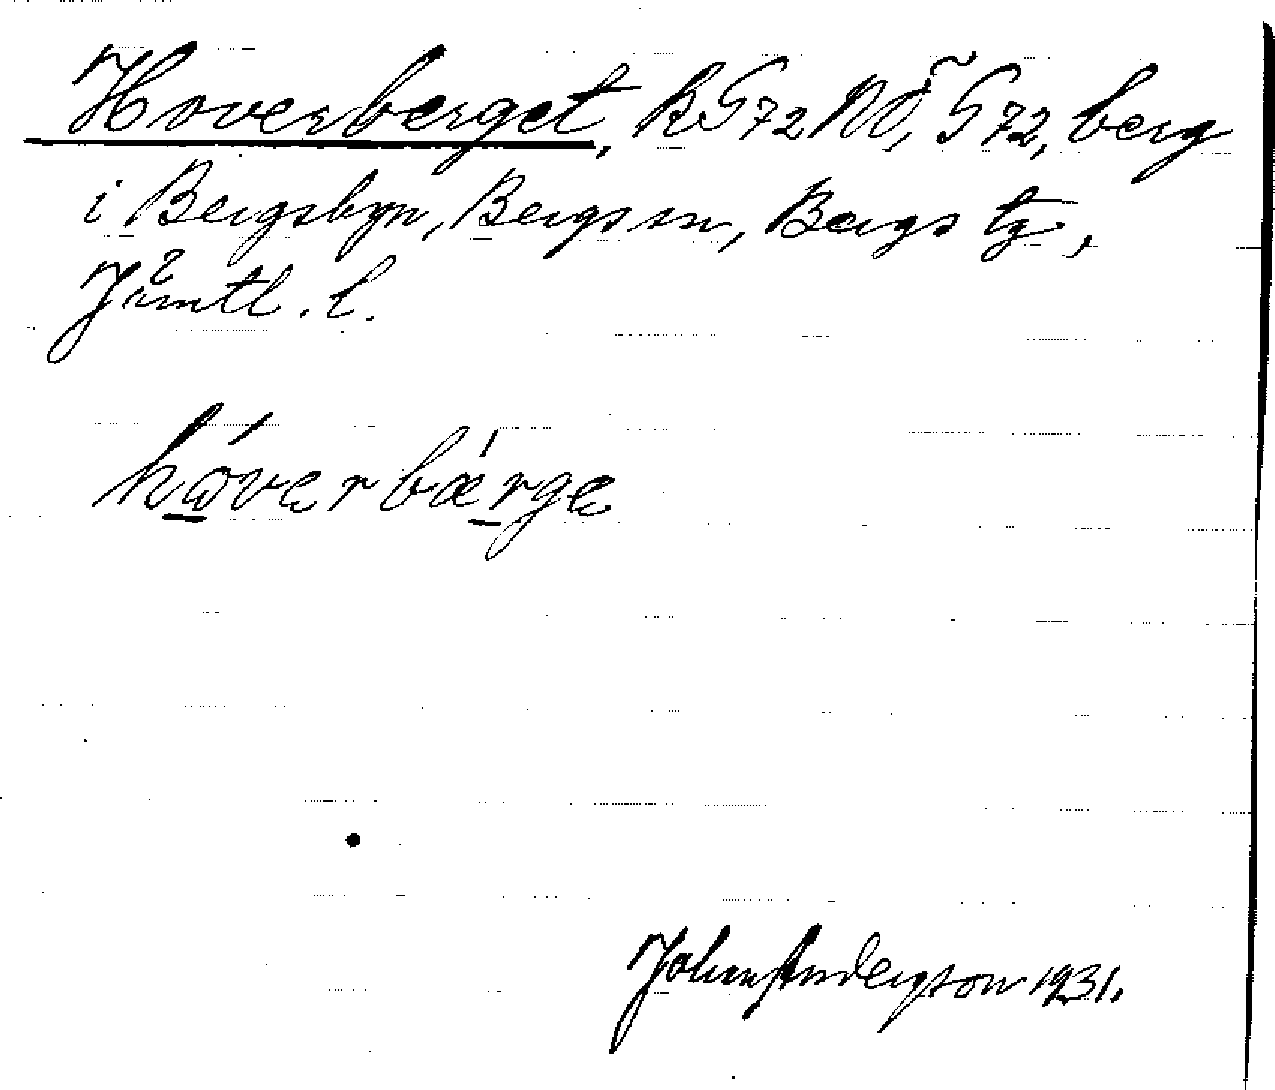 Hoverberget, RG72NÖ, G72, berg
i Bergsbyn, Bergs sn, Bergs tg,
Jämtl. l.
hóverbǽrge
Johan Anderson 1931.